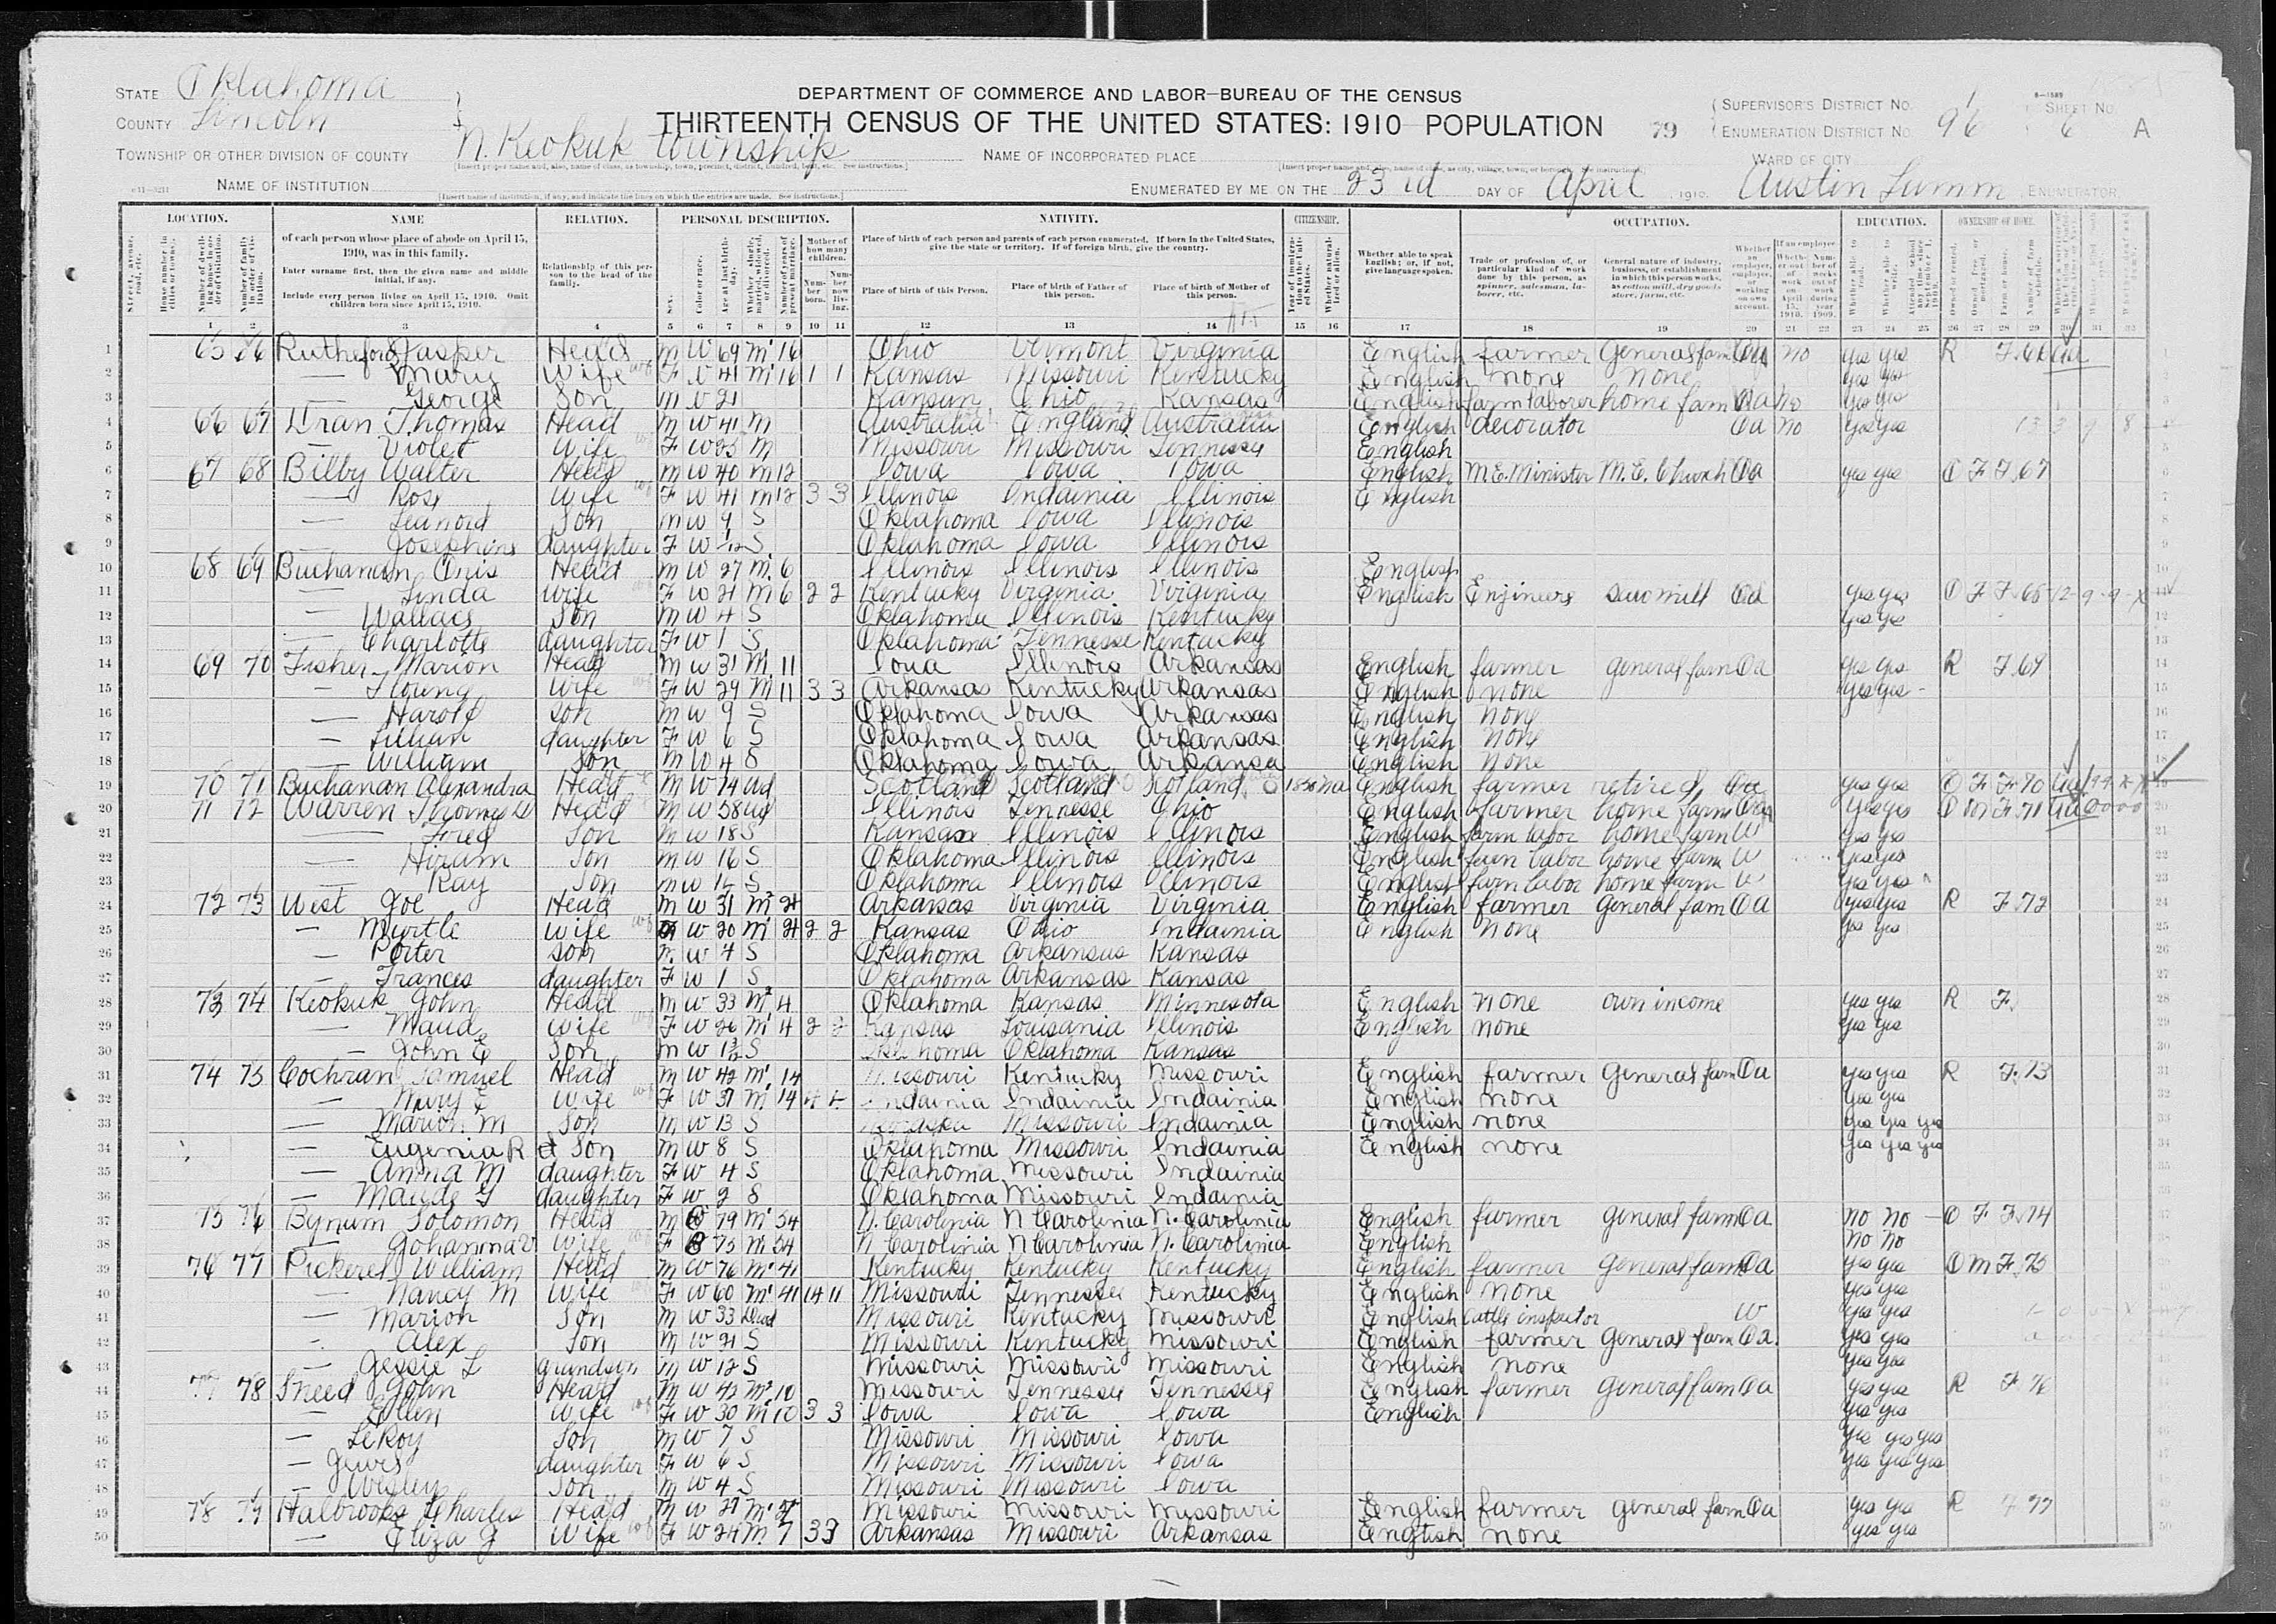 STATE Oklahoma
COUNTY Lincoln
TOWNSHIP OR OTHER DIVISION OF COUNTY N. Keokuk Township
NAME OF INSTITUTION
DEPARTMENT OF COMMERCE AND LABOR—BUREAU OF THE CENSUS
THIRTEENTH CENSUS OF THE UNITED STATES: 1910 POPULATION
79
NAME OF INCORPORATED PLACE
ENUMERATED BY ME ON THE 23rd DAY OF April, 1910. Austin Lumm, ENUMERATOR.
SUPERVISOR'S DISTRICT NO. 1
ENUMERATION DISTRICT NO. 96
SHEET NO. 6 A
WARD OF CITY
LOCATION. NAME RELATION. PERSONAL DESCRIPTION. NATIVITY. CITIZENSHIP. OCCUPATION. EDUCATION. OWNERSHIP OF HOME.
of each person whose place of abode on April 15, 1910, was in this family.
Enter surname first, then the given name and middle initial, if any.
Include every person living on April 15, 1910. Omit children born since April 15, 1910.
Relationship of this person to the head of the family.
Mother of how many children.
Place of birth of each person and parents of each person enumerated. If born in the United States, give the state or territory. If of foreign birth, give the country.
Place of birth of this Person. Place of birth of Father of this person. Place of birth of Mother of this person.
Whether able to speak English; or, if not, give language spoken.
Trade or profession of, or particular kind of work done by this person, as spinner, salesman, laborer, etc.
General nature of industry, business, or establishment in which this person works, as cotton mill, dry goods store, farm, etc.
1 2 3 4 5 6 7 8 9 10 11 12 13 14 15 16 17 18 19 20 21 22 23 24 25 26 27 28 29 30 31 32
1 65 66 Rutheford Jasper Head M W 69 M1 16 Ohio Vermont Virginia English farmer General farm Oa no yes yes R F 66 UA
2 — Mary Wife F W 41 M1 16 1 1 Kansas Missouri Kentucky English none none yes yes
3 — George Son M W 21 Kansas Ohio Kansas English farm laborer home farm Oa no yes yes
4 66 67 Dran Thomas Head M W 41 M Australia England Australia English decorator Oa no yes yes
5 — Violet Wife F W 25 M Missouri Missouri Tennessee English
6 67 68 Bilby Walter Head M W 40 M 12 Iowa Iowa Iowa English M.E. Minister M.E. Church Oa yes yes O F F 67
7 — Rose Wife F W 41 M 12 3 3 Illinois Indainia Illinois English
8 — Leanord Son M W 9 S Oklahoma Iowa Illinois
9 — Josephine daughter F W S Oklahoma Iowa Illinois
10 68 69 Buchanan Oris Head M W 27 M 6 Illinois Illinois Illinois English
11 — Linda Wife F W 21 M 6 2 2 Kentucky Virginia Virginia English Engineer saw mill Oa yes yes O F F 68
12 — Wallace Son M W 4 S Oklahoma Illinois Kentucky yes yes
13 — Charlotte daughter F W 1 S Oklahoma Tennesse Kentucky
14 69 70 Fisher Marion Head M W 31 M 11 Iowa Illinois Arkansas English farmer general farm Oa yes yes R F 69
15 — Wife F W 29 M 11 3 3 Arkansas Kentucky Arkansas English none yes yes
16 — Harold Son M W 9 S Oklahoma Iowa Arkansas English none
17 — Lillian daughter F W 6 S Oklahoma Iowa Arkansas English none
18 — William Son M W 4 S Oklahoma Iowa Arkansa English none
19 70 71 Buchanan Alexandra Head M W 74 Wd Scotland Scotland Scotland Na English farmer retired Oa yes yes O F F 70 UA
20 71 72 Warren Thomas W Head M W 58 Wd Illinois Tennesse Ohio English farmer home farm Oa yes yes O M F 71 UA
21 — Fred Son M W 18 S Kansas Illinois Illinois English farm labor home farm W yes yes
22 — Hiram Son M W 16 S Oklahoma Illinois Illinois English farm labor home farm W yes yes
23 — Ray Son M W S Oklahoma Illinois Illinois English farm labor home farm W yes yes
24 72 73 West Joe Head M W 31 M2 Arkansas Virginia Virginia English farmer General farm Oa yes yes R F 72
25 — Myrtle Wife F W 20 M1 2 2 Kansas Ohio Indainia English none yes yes
26 — Porter son M W 4 S Oklahoma Arkansas Kansas
27 — Frances daughter F W 1 S Oklahoma Arkansas Kansas
28 73 74 Keokuk John Head M W 33 M2 4 Oklahoma Kansas Minnesota English none own income yes yes R F
29 — Maud Wife F W 26 M1 4 2 2 Kansas Louisania Illinois English none yes yes
30 — John E Son M W S Oklahoma Oklahoma Kansas
31 74 75 Cochran Samuel Head M W 42 M1 14 Missouri Kentucky Missouri English farmer General farm Oa yes yes R F 73
32 — Mary E Wife F W 37 M 14 4 4 Indainia Indainia Indainia English none yes yes
33 — Marion M Son M W 13 S Missouri Indainia English none yes yes yes
34 — Eugenia R d Son M W 8 S Oklahoma Missouri Indainia English none yes yes yes
35 — Anna M daughter F W 4 S Oklahoma Missouri Indainia
36 — Maude G daughter F W 2 S Oklahoma Missouri Indainia
37 75 76 Bynum Solomon Head M 79 M1 54 N. Carolinia N Carolinia N. Carolinia English farmer general farm Oa no no O F F 74
38 — Johanna V Wife F 75 M 54 N Carolinia N Carolinia N. Carolinia English no no
39 76 77 Pickerel William Head M W 76 M1 41 Kentucky Kentucky Kentucky English farmer general farm Oa yes yes O M F 75
40 — Nancy M Wife F W 60 M1 41 14 11 Missouri Tennessee Kentucky English none yes yes
41 — Marion Son M W 33 Missouri Kentucky Missouri English Cattle inspector W yes yes
42 — Alex Son M W 21 S Missouri Kentucky Missouri English farmer general farm Oa yes yes
43 — Jessie L grandson M W 12 S Missouri Missouri Missouri English none yes yes
44 77 78 Sneed John Head M W 42 M2 10 Missouri Tennessee Tennessee English farmer General farm Oa yes yes R F 76
45 — Ellen Wife F W 30 M1 10 3 3 Iowa Iowa Iowa English yes yes
46 — LeRoy Son M W 7 S Missouri Missouri Iowa yes yes yes
47 — daughter F W 6 S Missouri Missouri Iowa yes yes yes
48 — Wesley Son M W 4 S Missouri Missouri Iowa
49 78 79 Halbrooks Charles Head M W 27 M1 Missouri Missouri Missouri English farmer general farm Oa yes yes R F 77
50 — Eliza J Wife F W 24 M 7 3 3 Arkansas Missouri Arkansas English none yes yes